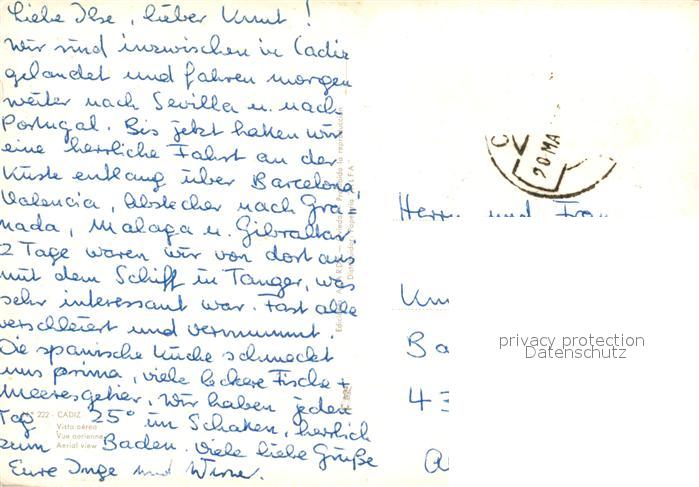 Liebe Ilse, lieber Knut!
Wir sind inzwischen in Cadiz
gelandet und fahren morgen
weiter nach Sevilla u. nach
Portugal. Bis jetzt hatten wir
eine herrliche Fahrt an der
Küste entlang über Barcelona,
Valencia, Abstecher nach Gra=
nada, Malaga u. Gibraltar
2 Tage waren wir von dort aus
mit dem Schiff in Tanger, was
sehr interessant war. Fast alle
verschleiert und vermummt.
Die spanische Küche schmeckt
uns prima, viele leckere Fische +
Meeresgetier. Wir haben jeden
Tag 25° im Schatten, herrlich
zum Baden. Viele liebe Grüße
Eure Inge und Werner.
222 - CADIZ
Vista aérea
Vue aérienne
Aerial view
Prohibida la reproducción
20 MA
Herrn und Frau
Kn
Ba
43
privacy protection
Datenschutz